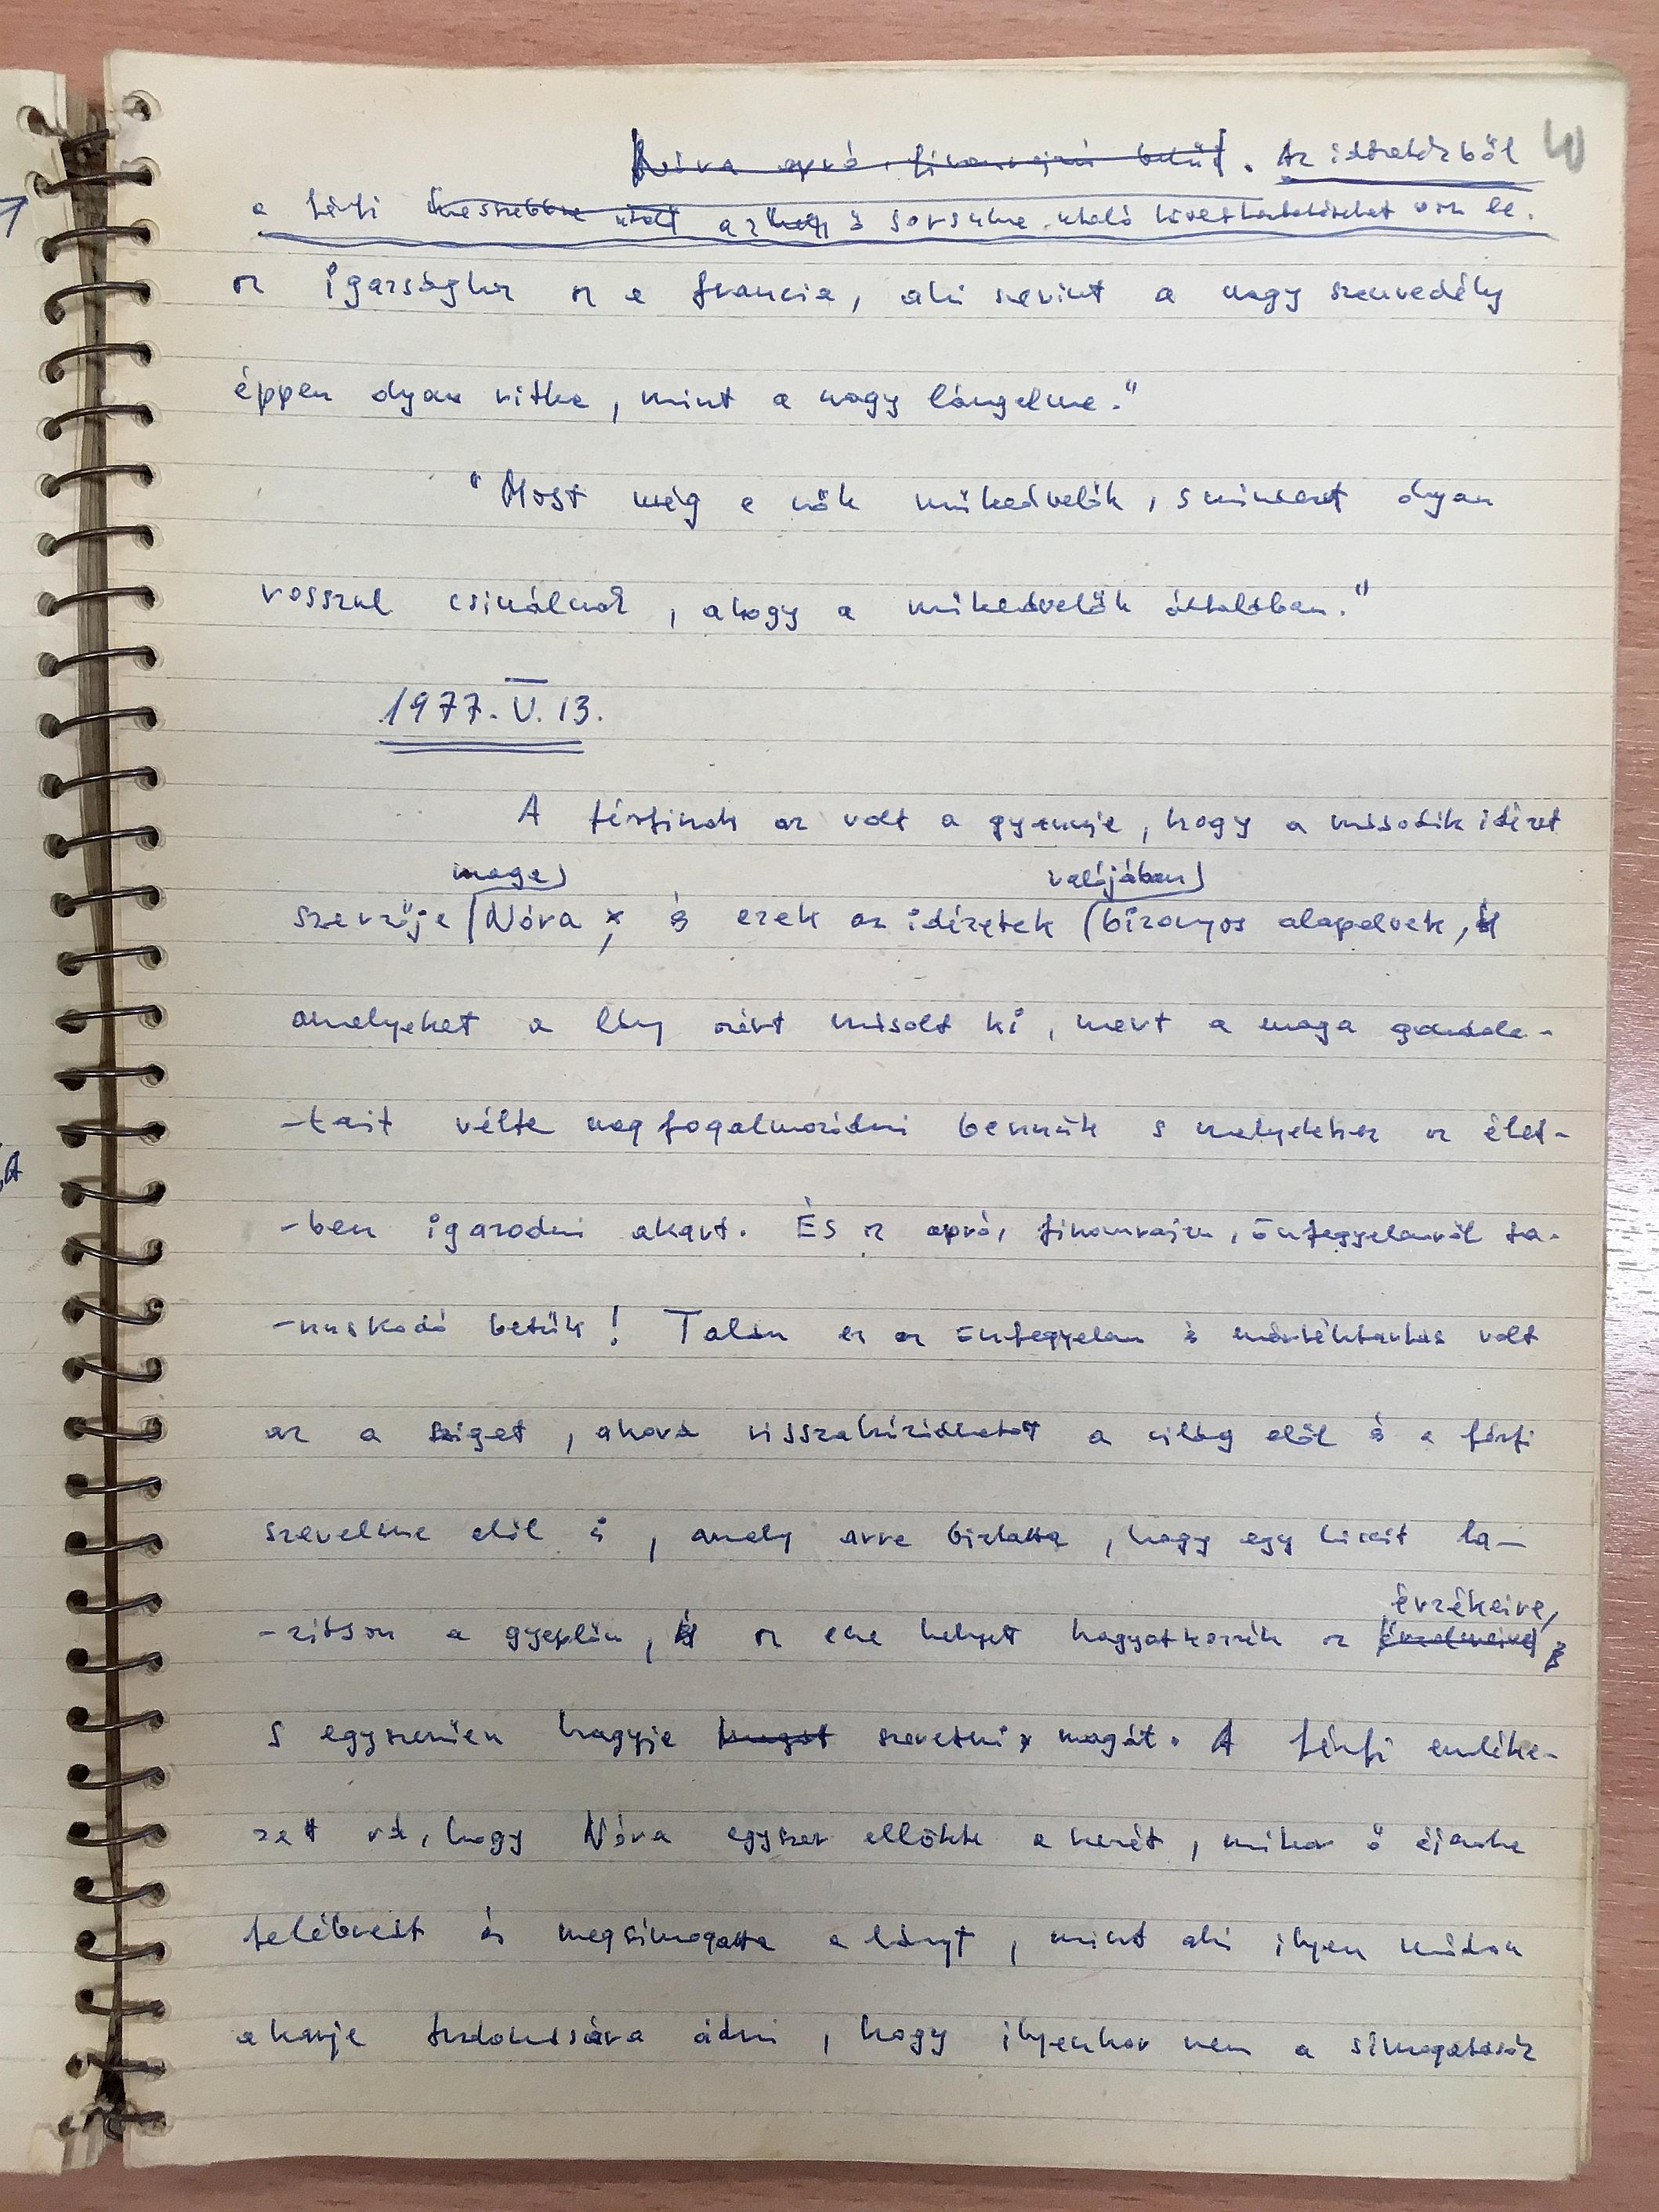 Nóra apró, finomrajzú betűi. Az idézetekből
a férfi messzebbre utaló az és sorsukra utaló következtetéseket von le.
az igazsághoz az a francia, aki szerint a nagy szenvedély
éppen olyan ritka, mint a nagy lángelme."
"Most még a nők műkedvelők, s mindent olyan
rosszul csinálnak, ahogy a műkedvelők általában."
1977. V. 13.
A férfinak az volt a gyanúja, hogy a második idézet
maga valójában
szerzője Nóra, és ezek az idézetek bizonyos alapelvek,
amelyeket a lány azért másolt ki, mert a maga gondola-
-tait vélte megfogalmazódni bennük s melyekhez az élet-
-ben igazodni akart. És az apró, finomrajzú, önfegyelemről ta-
-nuskodó betűk! Talán ez az önfegyelem és mértéktartás volt
az a sziget, ahová visszahúzódhatott a világ elől és a férfi
szerelme elől is, amely arra biztatta, hogy egy kicsit la-
-zítson a gyeplőn, az esze helyett hagyatkozzék az
érzékeire,
érzelmeire
s egyszerűen hagyja magát szeretni magát. A férfi emléke-
zett rá, hogy Nóra egyszer ellökte a kezét, mikor ő éjszaka
felébredt és megsimogatta a lányt, mint aki ilyen módon
akarja tudomására adni, hogy ilyenkor nem a simogatások